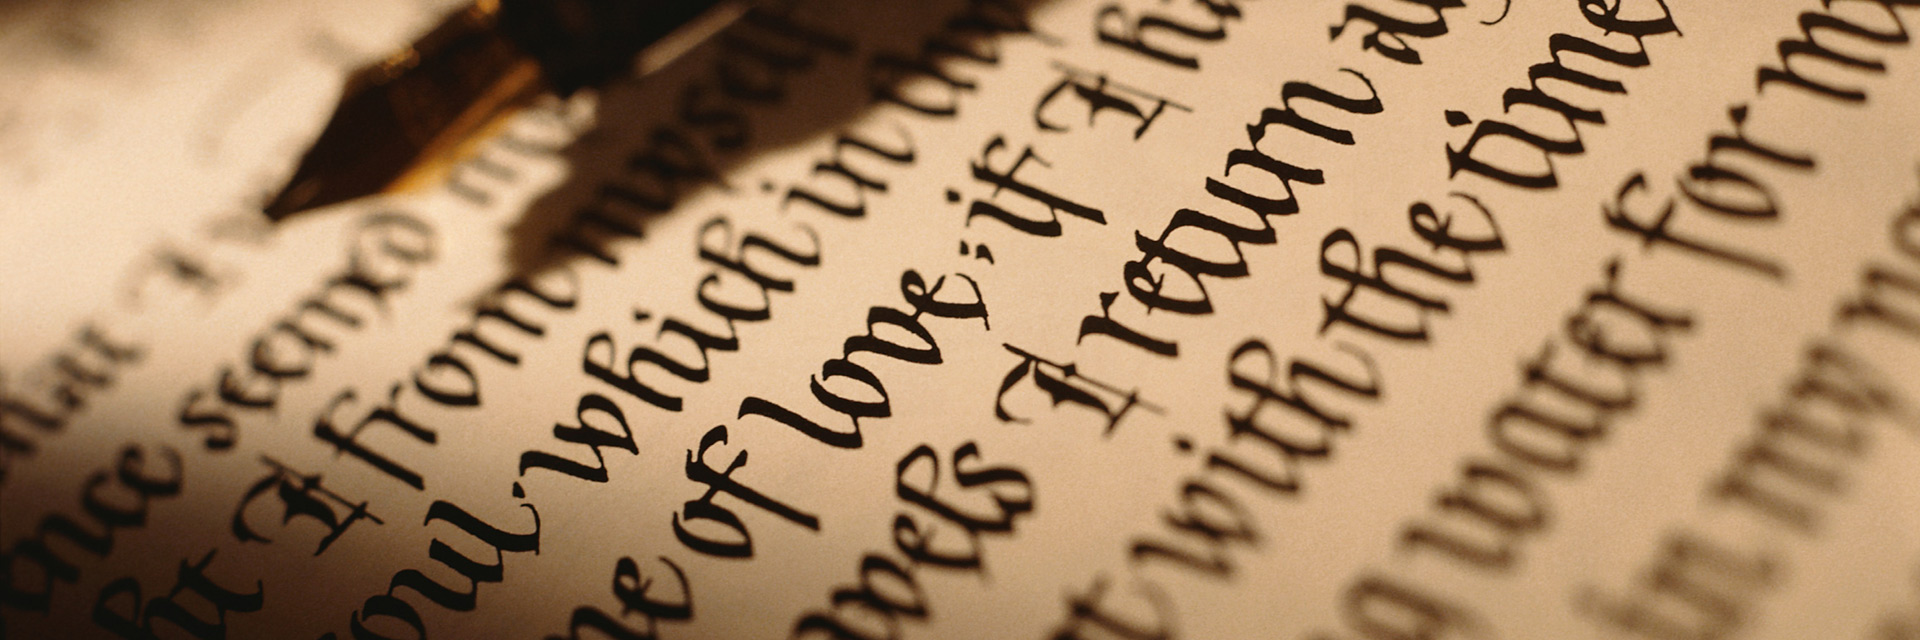 that I
ence seemd m
ht I from myself
oul, which in th
me of love: if I ha
vels I return ag
t with the time
g water for m
in my na